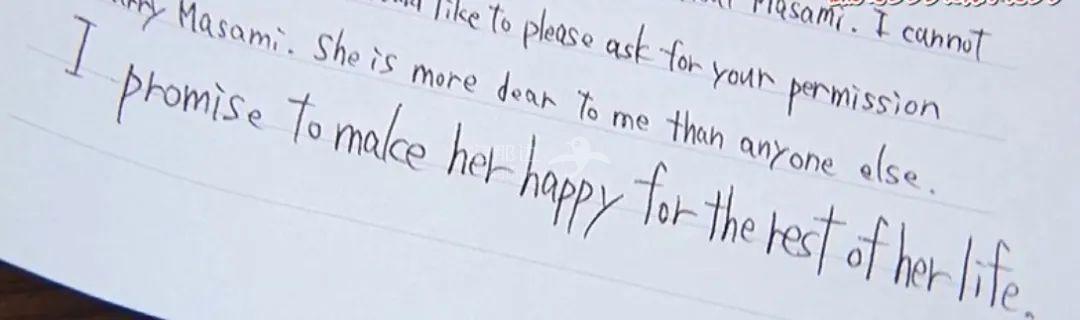 Masami. I cannot
like to please ask for your permission
Masami. She is more dear to me than anyone else.
I promise to make her happy for the rest of her life.